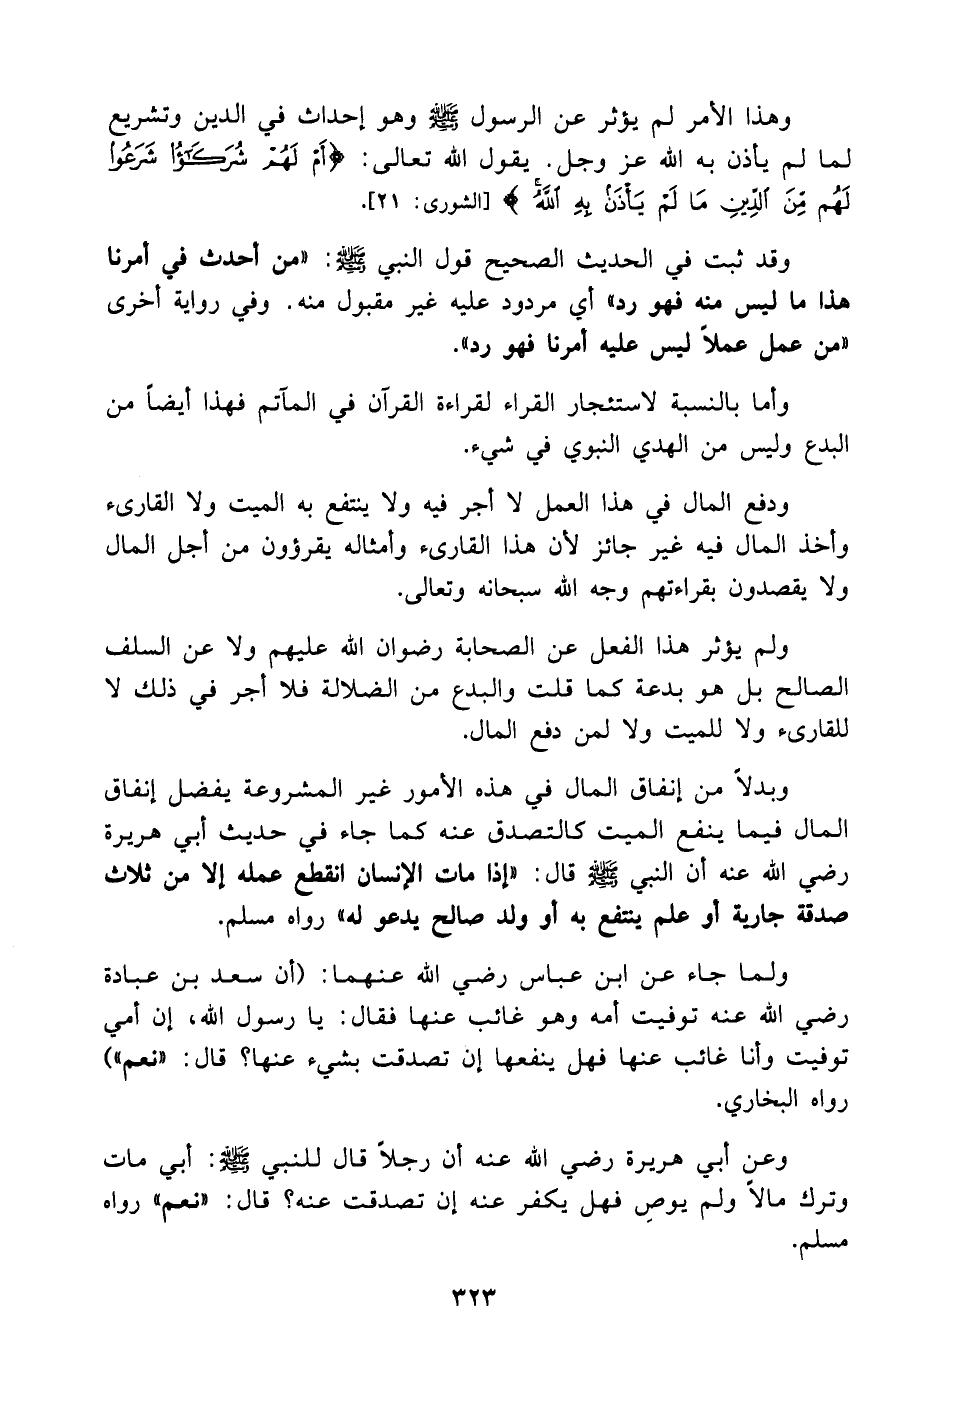 وهذا الأمر لم يؤثر عن الرسول ﷺ وهو إحداث في الدين وتشريع
لما لم يأذن به الله عز وجل. يقول الله تعالى: ﴿أَمْ لَهُمْ شُرَكَـٰٓؤُا۟ شَرَعُوا۟
لَهُم مِّنَ ٱلدِّينِ مَا لَمْ يَأْذَنۢ بِهِ ٱللَّهُ ۚ﴾ [الشورى: ٢١].
وقد ثبت في الحديث الصحيح قول النبي ﷺ: «من أحدث في أمرنا
هذا ما ليس منه فهو رد» أي مردود عليه غير مقبول منه. وفي رواية أخرى
«من عمل عملاً ليس عليه أمرنا فهو رد».
وأما بالنسبة لاستئجار القراء لقراءة القرآن في المآتم فهذا أيضاً من
البدع وليس من الهدي النبوي في شيء.
ودفع المال في هذا العمل لا أجر فيه ولا ينتفع به الميت ولا القارىء
وأخذ المال فيه غير جائز لأن هذا القارىء وأمثاله يقرؤون من أجل المال
ولا يقصدون بقراءتهم وجه الله سبحانه وتعالى.
ولم يؤثر هذا الفعل عن الصحابة رضوان الله عليهم ولا عن السلف
الصالح بل هو بدعة كما قلت والبدع من الضلالة فلا أجر في ذلك لا
للقارىء ولا للميت ولا لمن دفع المال.
وبدلاً من إنفاق المال في هذه الأمور غير المشروعة يفضل إنفاق
المال فيما ينفع الميت كالتصدق عنه كما جاء في حديث أبي هريرة
رضي الله عنه أن النبي ﷺ قال: «إذا مات الإنسان انقطع عمله إلا من ثلاث
صدقة جارية أو علم ينتفع به أو ولد صالح يدعو له» رواه مسلم.
ولما جاء عن ابن عباس رضي الله عنهما: (أن سعد بن عبادة
رضي الله عنه توفيت أمه وهو غائب عنها فقال: يا رسول الله، إن أمي
توفيت وأنا غائب عنها فهل ينفعها إن تصدقت بشيء عنها؟ قال: «نعم»)
رواه البخاري.
وعن أبي هريرة رضي الله عنه أن رجلاً قال للنبي ﷺ: أبي مات
وترك مالاً ولم يوصِ فهل يكفر عنه إن تصدقت عنه؟ قال: «نعم» رواه
مسلم.
٣٢٣